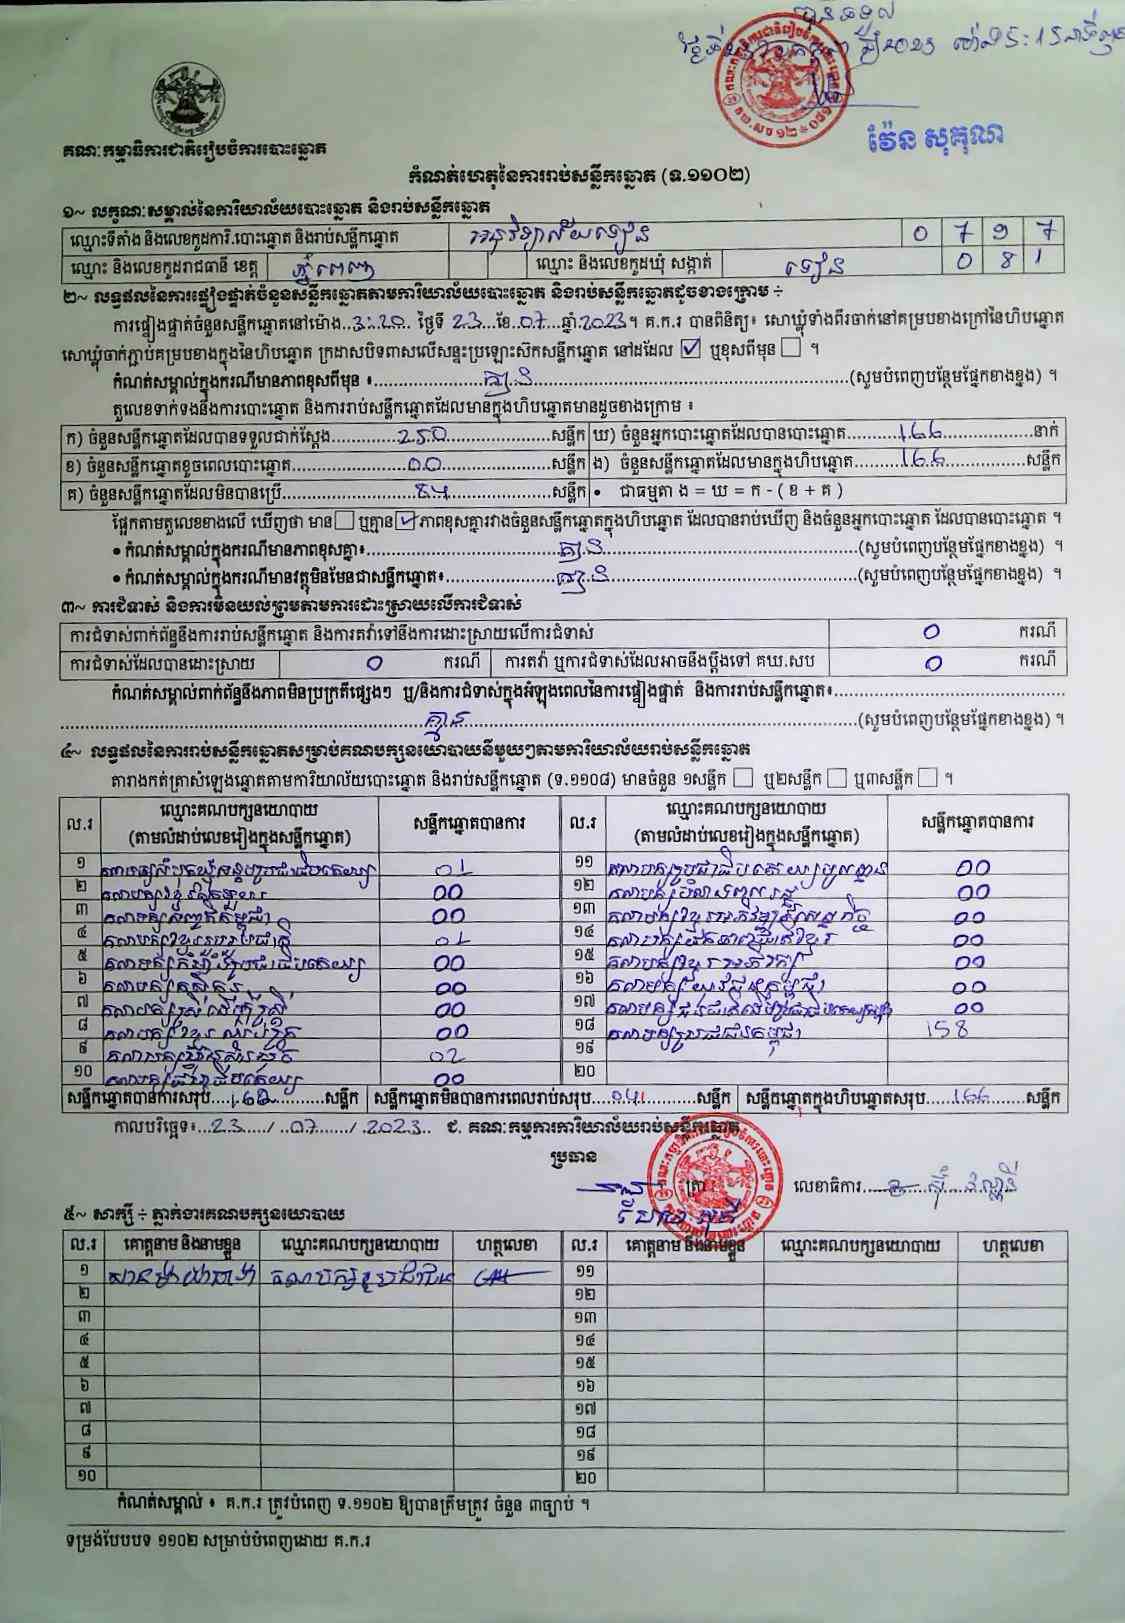 បានទទួល
គណៈកម្មាធិការជាតិរៀបចំការបោះឆ្នោត
វ៉ែន សុគុណ
កំណត់ហេតុនៃការរាប់សន្លឹកឆ្នោត (ទ.១១០២)
១~ លក្ខណៈសម្គាល់នៃការិយាល័យបោះឆ្នោត និងរាប់សន្លឹកឆ្នោត
ឈ្មោះទីតាំង និងលេខកូដការិ.បោះឆ្នោត និងរាប់សន្លឹកឆ្នោត អនុវិទ្យាល័យទៀន 0 7 9 7
ឈ្មោះ និងលេខកូដរាជធានី ខេត្ត ភ្នំពេញ ឈ្មោះ និងលេខកូដឃុំ សង្កាត់ ទៀន 0 8 1
២~ លទ្ធផលនៃការផ្ទៀងផ្ទាត់ចំនួនសន្លឹកឆ្នោតតាមការិយាល័យបោះឆ្នោត និងរាប់សន្លឹកឆ្នោតដូចខាងក្រោម ÷
ការផ្ទៀងផ្ទាត់ចំនួនសន្លឹកឆ្នោតនៅម៉ោង..3:20. ថ្ងៃទី 23...ខែ.07....ឆ្នាំ.2023។ គ.ក.រ បានពិនិត្យ៖ សោឃ្លុំទាំងពីរចាក់នៅគម្របខាងក្រៅនៃហិបឆ្នោត
សោឃ្លុំចាក់ភ្ជាប់គម្របខាងក្នុងនៃហិបឆ្នោត ក្រដាសបិទពាសលើសន្ទះប្រឡោះស៊កសន្លឹកឆ្នោត នៅដដែល ☑ ឬខុសពីមុន ☐ ។
កំណត់សម្គាល់ក្នុងករណីមានភាពខុសពីមុន ៖ គ្មាន (សូមបំពេញបន្ថែមផ្នែកខាងខ្នង) ។
តួលេខទាក់ទងនឹងការបោះឆ្នោត និងការរាប់សន្លឹកឆ្នោតដែលមានក្នុងហិបឆ្នោតមានដូចខាងក្រោម ៖
ក) ចំនួនសន្លឹកឆ្នោតដែលបានទទួលជាក់ស្តែង 250 សន្លឹក ឃ) ចំនួនអ្នកបោះឆ្នោតដែលបានបោះឆ្នោត 166 នាក់
ខ) ចំនួនសន្លឹកឆ្នោតខូចពេលបោះឆ្នោត 00 សន្លឹក ង) ចំនួនសន្លឹកឆ្នោតដែលមានក្នុងហិបឆ្នោត 166 សន្លឹក
គ) ចំនួនសន្លឹកឆ្នោតដែលមិនបានប្រើ 84 សន្លឹក • ជាធម្មតា ង = ឃ = ក - ( ខ + គ )
ផ្អែកតាមតួលេខខាងលើ ឃើញថា មាន ☐ ឬគ្មាន ☑ ភាពខុសគ្នារវាងចំនួនសន្លឹកឆ្នោតក្នុងហិបឆ្នោត ដែលបានរាប់ឃើញ និងចំនួនអ្នកបោះឆ្នោត ដែលបានបោះឆ្នោត ។
• កំណត់សម្គាល់ក្នុងករណីមានភាពខុសគ្នា៖ គ្មាន (សូមបំពេញបន្ថែមផ្នែកខាងខ្នង) ។
• កំណត់សម្គាល់ក្នុងករណីមានវត្ថុមិនមែនជាសន្លឹកឆ្នោត៖ គ្មាន (សូមបំពេញបន្ថែមផ្នែកខាងខ្នង) ។
៣~ ការជំទាស់ និងការមិនយល់ព្រមតាមការដោះស្រាយលើការជំទាស់
ការជំទាស់ពាក់ព័ន្ធនឹងការរាប់សន្លឹកឆ្នោត និងការតវ៉ាទៅនឹងការដោះស្រាយលើការជំទាស់ 0 ករណី
ការជំទាស់ដែលបានដោះស្រាយ 0 ករណី ការតវ៉ា ឬការជំទាស់ដែលអាចនឹងប្តឹងទៅ គឃ.សប 0 ករណី
កំណត់សម្គាល់ពាក់ព័ន្ធនឹងភាពមិនប្រក្រតីផ្សេងៗ ឬ/និងការជំទាស់ក្នុងអំឡុងពេលនៃការផ្ទៀងផ្ទាត់ និងការរាប់សន្លឹកឆ្នោត៖
គ្មាន (សូមបំពេញបន្ថែមផ្នែកខាងខ្នង) ។
៤~ លទ្ធផលនៃការរាប់សន្លឹកឆ្នោតសម្រាប់គណបក្សនយោបាយនីមួយៗតាមការិយាល័យរាប់សន្លឹកឆ្នោត
តារាងកត់ត្រាសំឡេងឆ្នោតតាមការិយាល័យបោះឆ្នោត និងរាប់សន្លឹកឆ្នោត (ទ.១១០៨) មានចំនួន ១សន្លឹក ☐ ឬ២សន្លឹក ☐ ឬ៣សន្លឹក ☐ ។
ល.រ ឈ្មោះគណបក្សនយោបាយ (តាមលំដាប់លេខរៀងក្នុងសន្លឹកឆ្នោត) សន្លឹកឆ្នោតបានការ ល.រ ឈ្មោះគណបក្សនយោបាយ (តាមលំដាប់លេខរៀងក្នុងសន្លឹកឆ្នោត) សន្លឹកឆ្នោតបានការ
១ 01 ១១ 00
២ 00 ១២ 00
៣ 00 ១៣ 00
៤ 01 ១៤ 00
៥ 00 ១៥ 00
៦ 00 ១៦ 00
៧ 00 ១៧ 00
៨ 00 ១៨ គណបក្សប្រជាជនកម្ពុជា 158
៩ 02 ១៩
១០ 00 ២០
សន្លឹកឆ្នោតបានការសរុប 162 សន្លឹក សន្លឹកឆ្នោតមិនបានការពេលរាប់សរុប សន្លឹក សន្លឹកឆ្នោតក្នុងហិបឆ្នោតសរុប 166 សន្លឹក
កាលបរិច្ឆេទ៖ 23 / 07 / 2023 ជ. គណៈកម្មការការិយាល័យរាប់សន្លឹកឆ្នោត
ប្រធាន
ត្រា លេខាធិការ
៥~ សាក្សី ÷ ភ្នាក់ងារគណបក្សនយោបាយ
ល.រ គោត្តនាម និងនាមខ្លួន ឈ្មោះគណបក្សនយោបាយ ហត្ថលេខា ល.រ គោត្តនាម និងនាមខ្លួន ឈ្មោះគណបក្សនយោបាយ ហត្ថលេខា
១ គណបក្សប្រជាជន ១១
២ ១២
៣ ១៣
៤ ១៤
៥ ១៥
៦ ១៦
៧ ១៧
៨ ១៨
៩ ១៩
១០ ២០
កំណត់សម្គាល់ ៖ គ.ក.រ ត្រូវបំពេញ ទ.១១០២ ឱ្យបានត្រឹមត្រូវ ចំនួន ៣ច្បាប់ ។
ទម្រង់បែបបទ ១១០២ សម្រាប់បំពេញដោយ គ.ក.រ